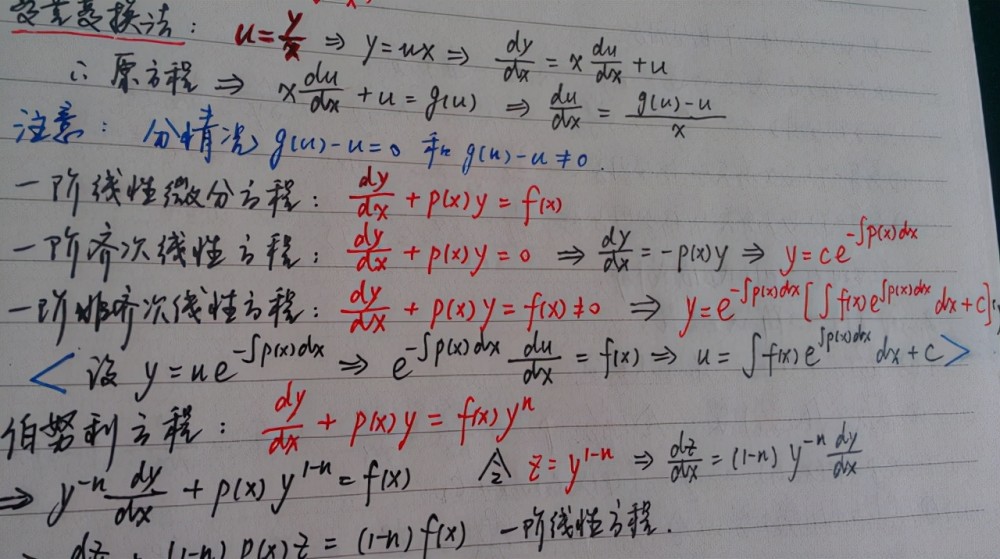 变量变换法: u=y/x ⇒ y=ux ⇒ dy/dx = x du/dx + u
∴ 原方程 ⇒ x du/dx + u = g(u) ⇒ du/dx = (g(u)-u)/x
注意: 分情况 g(u)-u=0 和 g(u)-u≠0.
一阶线性微分方程: dy/dx + p(x)y = f(x)
一阶齐次线性方程: dy/dx + p(x)y = 0 ⇒ dy/dx = -p(x)y ⇒ y=ce^{-∫p(x)dx}
一阶非齐次线性方程: dy/dx + p(x)y = f(x)≠0 ⇒ y=e^{-∫p(x)dx}[∫f(x)e^{∫p(x)dx}dx+c]
<设 y=ue^{-∫p(x)dx} ⇒ e^{-∫p(x)dx} du/dx = f(x) ⇒ u=∫f(x)e^{∫p(x)dx}dx+c>
伯努利方程: dy/dx + p(x)y = f(x)y^n
⇒ y^{-n} dy/dx + p(x)y^{1-n} = f(x) 令 z=y^{1-n} ⇒ dz/dx = (1-n)y^{-n} dy/dx
dz + (1-n)p(x)z = (1-n)f(x) 一阶线性方程.